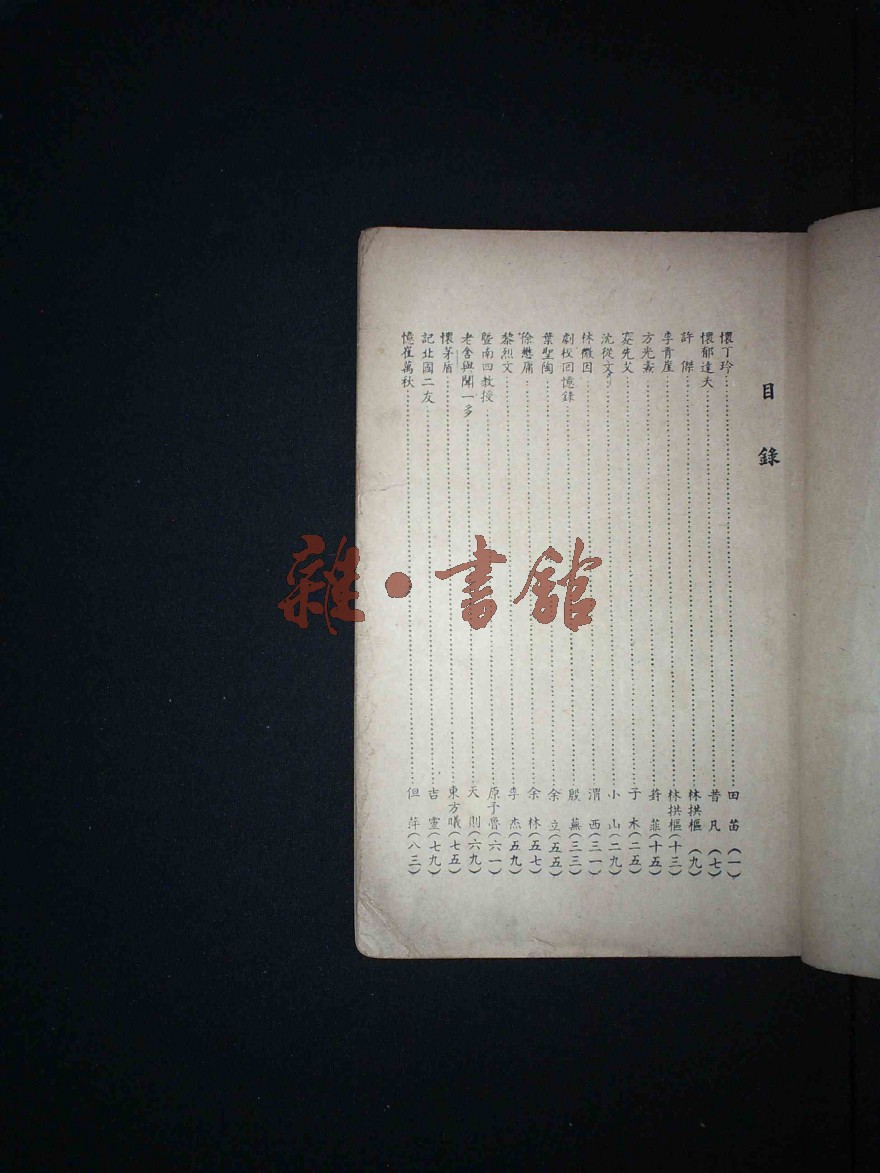 目錄
懷丁玲……田苗(一)
懷郁達夫……昔凡(七)
許傑……林拱樞(九)
李青崖……林拱樞(十三)
方光燾……菲(十五)
蹇先艾……子木(二五)
沈從文……小山(二九)
林徽因……渭西(三一)
劇校回憶錄……殷蕪(三三)
葉聖陶……余立(五五)
徐懋庸……余林(五七)
黎烈文……李杰(五九)
暨南四教授……原予魯(六一)
老舍與聞一多……天則(六九)
懷茅盾……東方曦(七五)
記北國二友……吉靈(七九)
憶崔萬秋……但萍(八三)
雜·書館